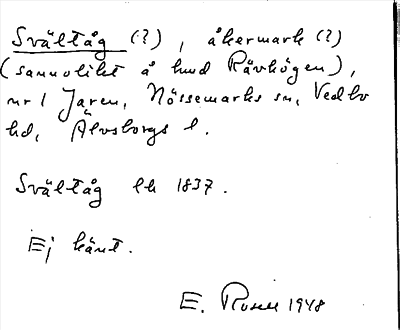 Svältåg (?), åkermark (?)
(sannolikt å hmd Rävhögen),
nr 1 Jaren, Nössemarks sn, Vedbo
hd, Älvsborgs l.
Svältåg lh 1837.
Ej känt.
E. Rosell 1948